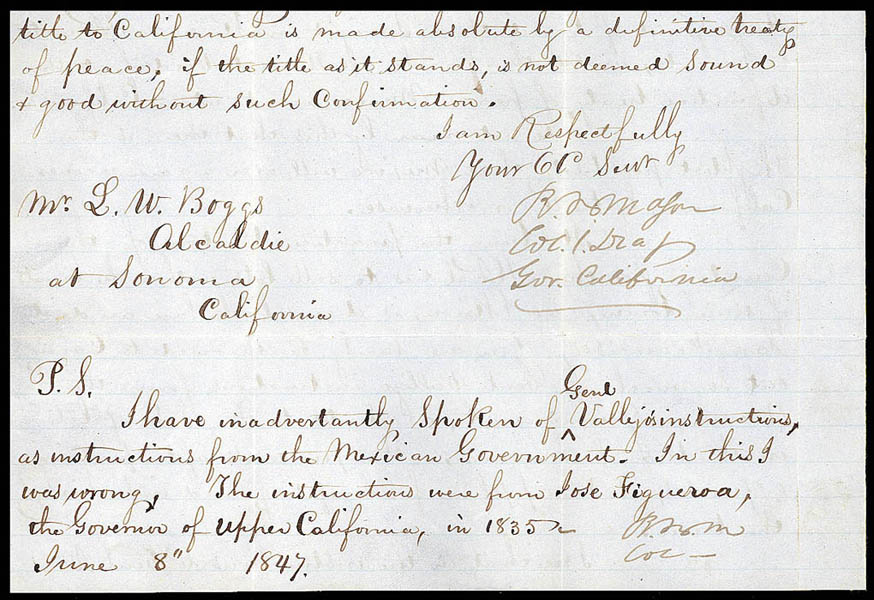 title to California is made absolute by a definitive treaty
of peace, if the title as it stands, is not deemed sound
& good without such Confirmation.
I am Respectfully
Your Ob Servt
R. B. Mason
Col. 1. Drag
Gov. California
Mr. L. W. Boggs
Alcaldie
at Sonoma
California
P. S.
Genl
I have inadvertantly Spoken of ^ Vallejo's instructions,
as instructions from the Mexican Government. In this I
was wrong, The instructions were from Jose Figueroa,
the Governor of Upper California, in 1835
R. B. M
Col
June 8" 1847.